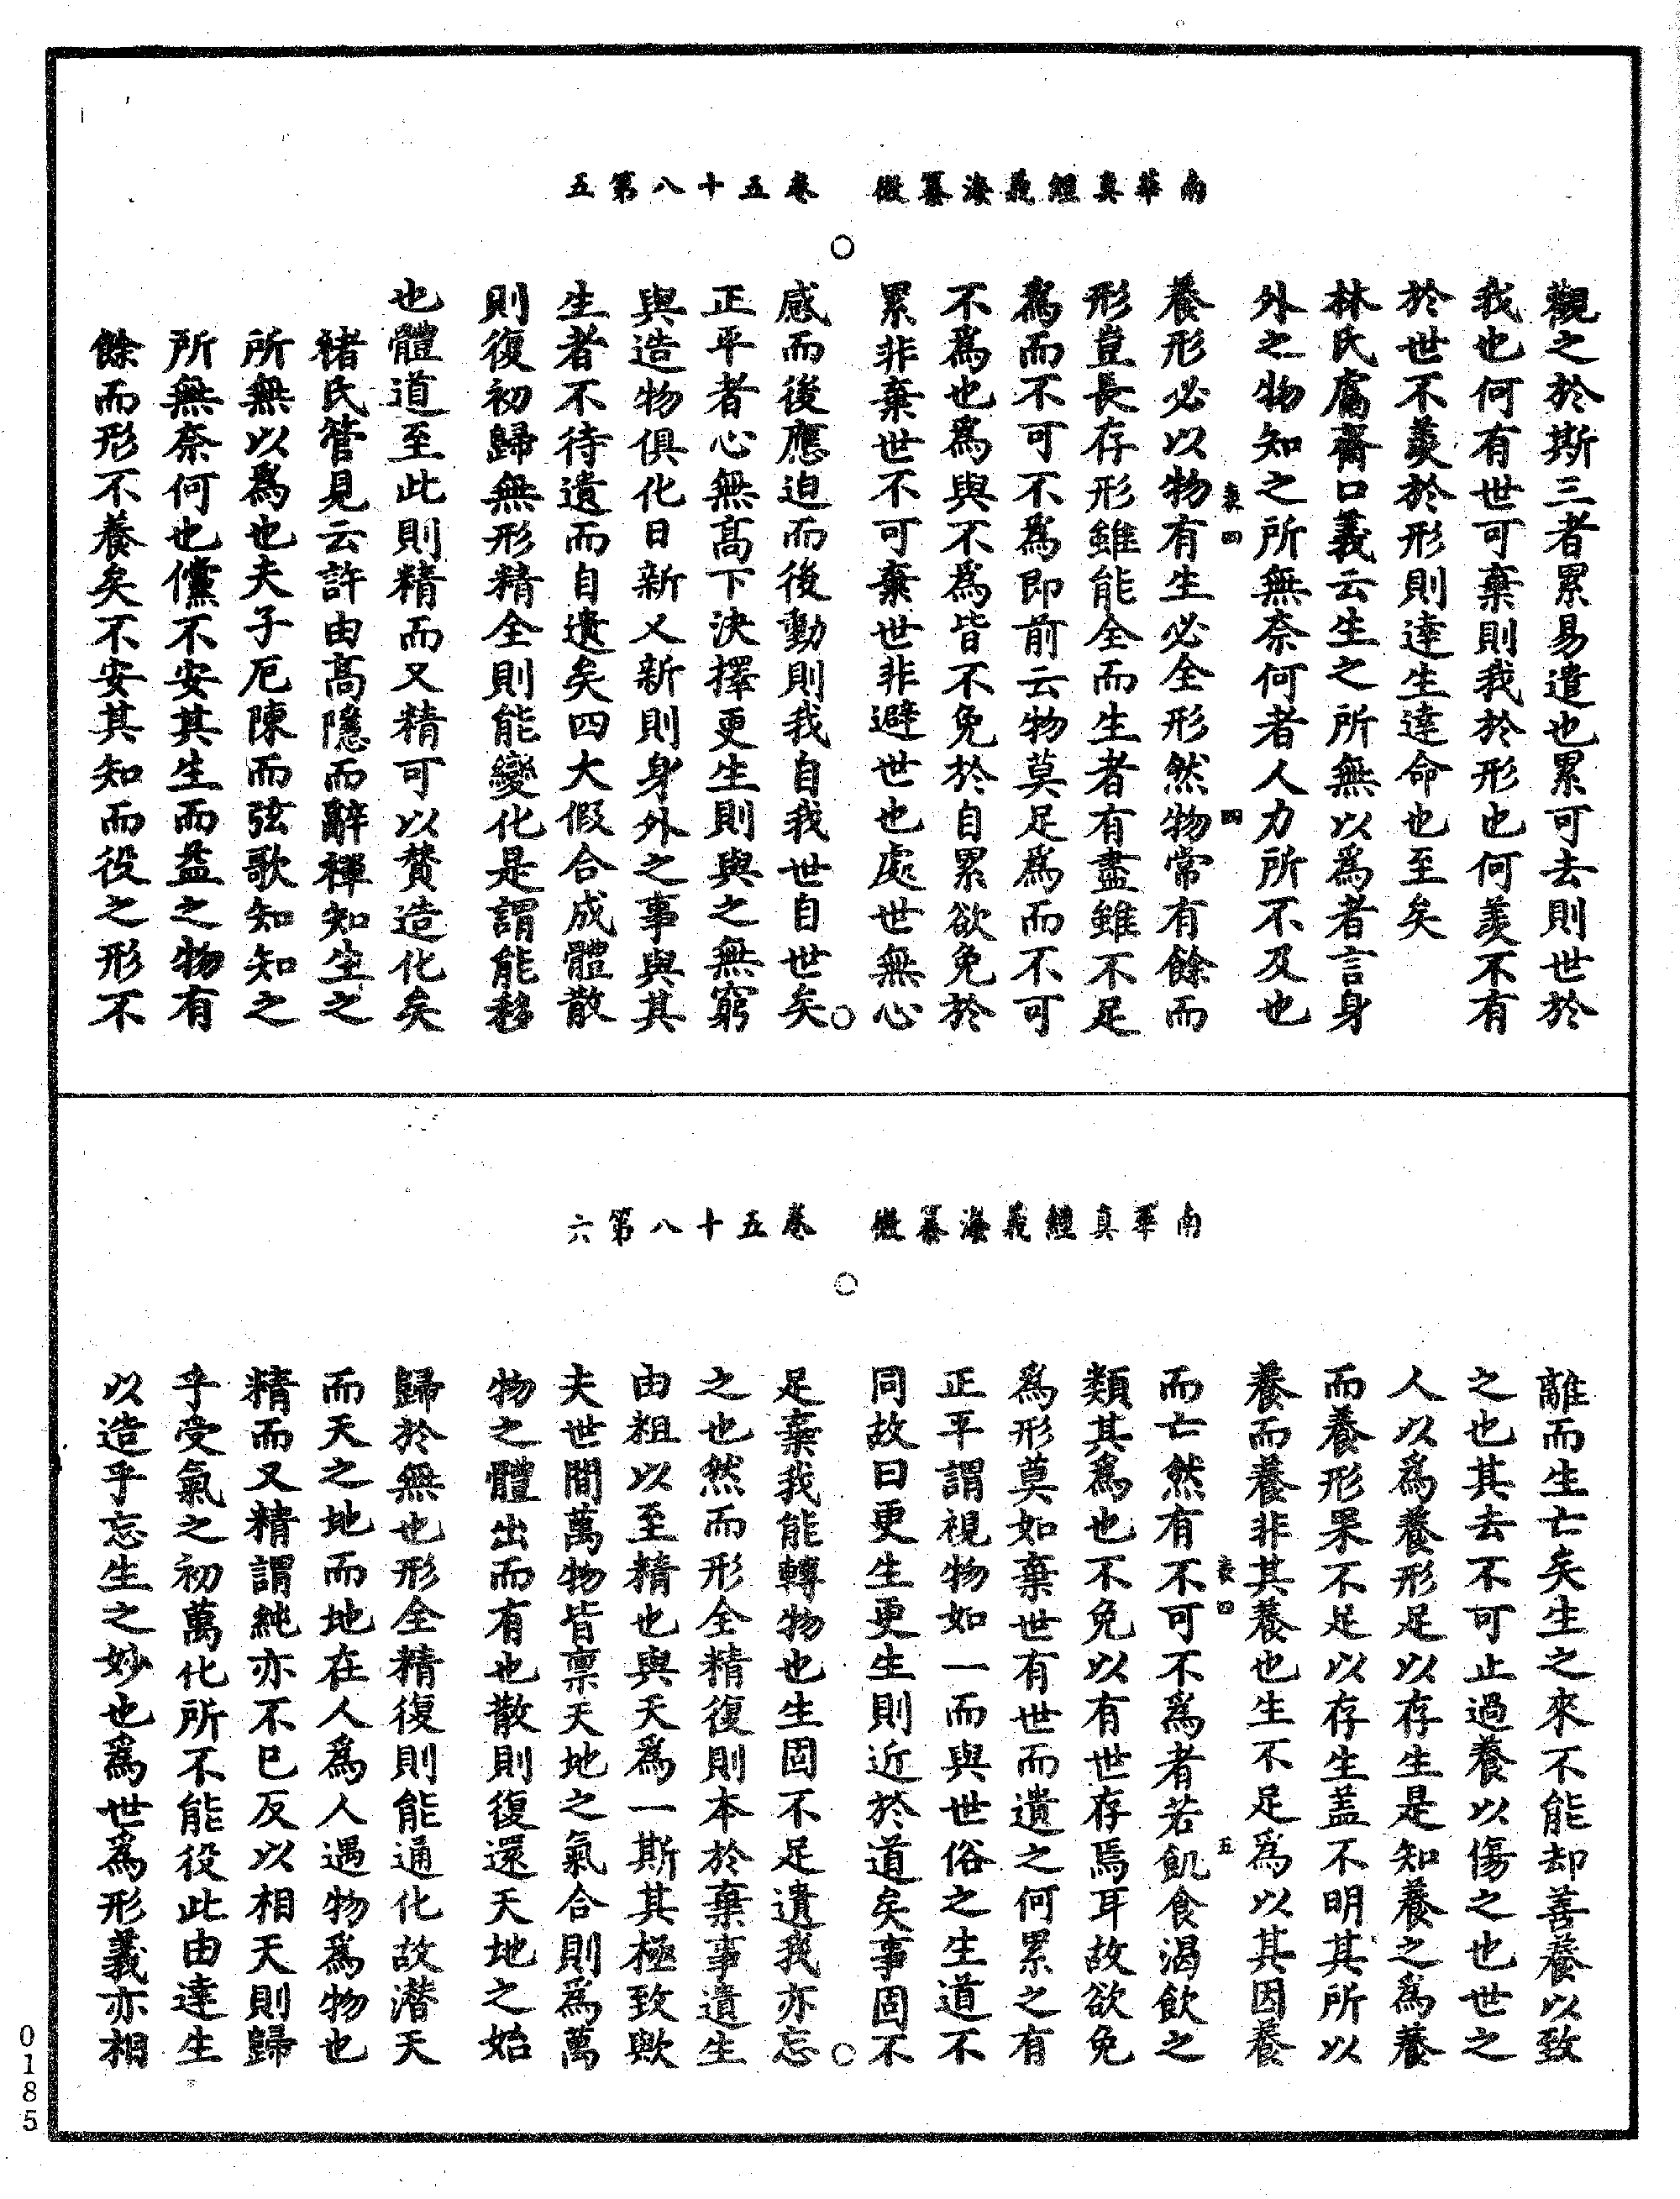 南華真經義海纂微　卷五十八第五
觀之於斯三者累易遣也累可去則世於
我也何有世可棄則我於形也何羨不有
於世不羨於形則達生達命也至矣
林氏鬳齋口義云生之所無以爲者言身
外之物知之所無奈何者人力所不及也
養形必以物有生必全形然物常有餘而
形豈長存形雖能全而生者有盡雖不足
爲而不可不爲即前云物莫足爲而不可
不爲也爲與不爲皆不免於自累欲免於
累非棄世不可棄世非避世也處世無心
感而後應迫而後動則我自我世自世矣
正平者心無高下決擇更生則與之無窮
與造物俱化日新又新則身外之事與其
生者不待遺而自遺矣四大假合成體散
則復初歸無形精全則能變化是謂能移
也體道至此則精而又精可以贊造化矣
褚氏管見云許由高隱而辭禪知生之
所無以爲也夫子厄陳而弦歌知知之
所無奈何也儻不安其生而益之物有
餘而形不養矣不安其知而役之形不
南華真經義海纂微　卷五十八第六
離而生亡矣生之來不能却善養以致
之也其去不可止過養以傷之也世之
人以爲養形足以存生是知養之爲養
而養形果不足以存生蓋不明其所以
養而養非其養也生不足爲以其因養
而亡然有不可不爲者若飢食渴飲之
類其爲也不免以有世存焉耳故欲免
爲形莫如棄世有世而遺之何累之有
正平謂視物如一而與世俗之生道不
同故曰更生更生則近於道矣事固不
足棄我能轉物也生固不足遺我亦忘
之也然而形全精復則本於棄事遺生
由粗以至精也與天爲一斯其極致歟
夫世間萬物皆稟天地之氣合則爲萬
物之體出而有也散則復還天地之始
歸於無也形全精復則能通化故潜天
而天之地而地在人爲人遇物爲物也
精而又精謂純亦不已反以相天則歸
乎受氣之初萬化所不能役此由達生
以造乎忘生之妙也爲世爲形義亦相
0185